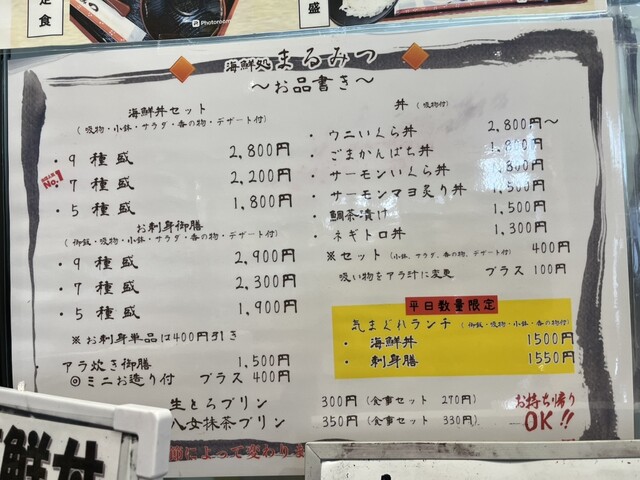 定食
Photoroom
盛
海鮮処 まるみつ
～お品書き～
海鮮丼セット
(吸物・小鉢・サラダ・香の物・デザート付)
・9種盛 2,800円
No.1
・7種盛 2,200円
・5種盛 1,800円
お刺身御膳
(御飯・吸物・小鉢・サラダ・香の物・デザート付)
・9種盛 2,900円
・7種盛 2,300円
・5種盛 1,900円
※お刺身単品は400円引き
アラ炊き御膳 1,500円
◎ミニお造り付 プラス 400円
丼 (吸物付)
・ウニいくら丼 2,800円～
・ごまかんぱち丼 1,800円
・サーモンいくら丼 1,800円
・サーモンマヨ炙り丼 1,500円
・鯛茶漬け 1,500円
・ネギトロ丼 1,300円
※セット (小鉢、サラダ、香の物、デザート付) 400円
吸い物をアラ汁に変更 プラス 100円
平日数量限定
気まぐれランチ (御飯・吸物・小鉢・香の物付)
・海鮮丼 1500円
・刺身膳 1550円
生とろプリン 300円 (食事セット 270円)
八女抹茶プリン 350円 (食事セット 330円)
お持ち帰り
OK!!
によって変わりま
鮮丼